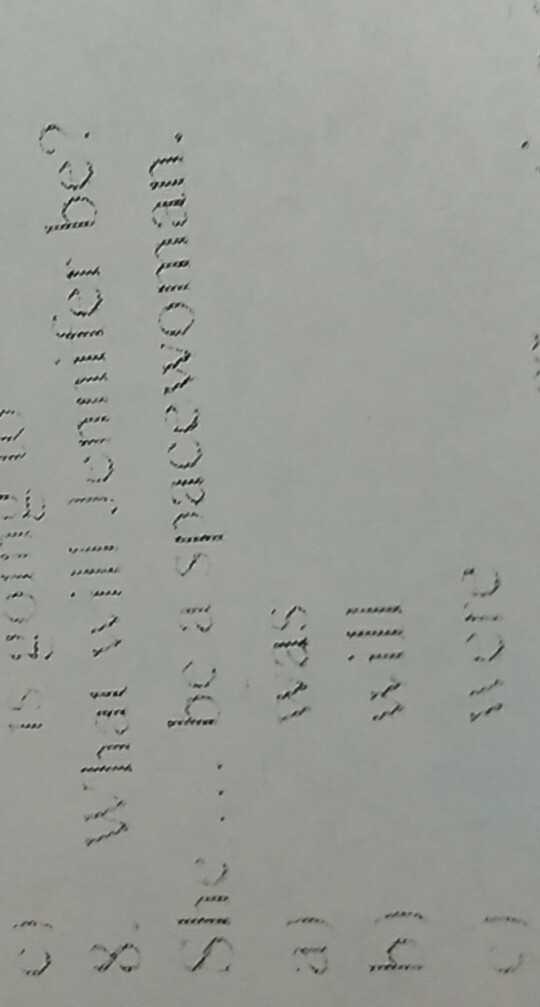 c) is going to
8. What will Jennifer be?
She ... be a spacewoman.
a) was
b) will
c) were